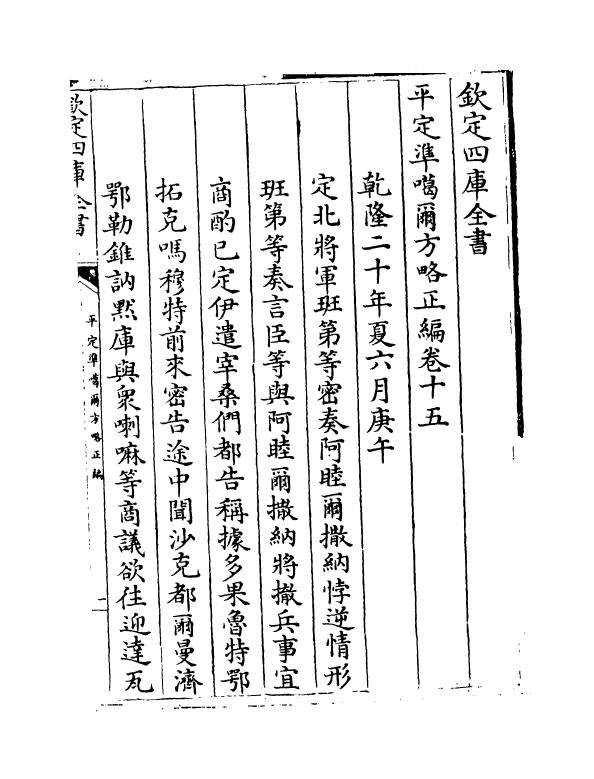 欽定四庫全書
平定準噶爾方略正編卷十五
乾隆二十年夏六月庚午
定北將軍班第等密奏阿睦爾撒納悖逆情形
班第等奏言臣等與阿睦爾撒納將撤兵事宜
商酌已定伊遣宰桑們都告稱據多果魯特鄂
拓克嗎穆特前來密告途中聞沙克都爾曼濟
鄂勒錐訥黙庫與衆喇嘛等商議欲往迎達瓦
欽定四庫全書
平定準噶爾方略正編
一